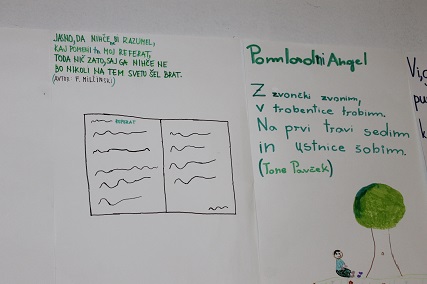 JASNO, DA NIHČE NI RAZUMEL,
KAJ POMENI TA MOJ REFERAT,
TODA NIČ ZATO, SAJ GA NIHČE NE
BO NIKOLI NA TEM SVETU ŠEL BRAT.
(AVTOR: F. MILČINSKI)
REFERAT
Pomladni Angel
Z zvončki zvonim,
v trobentice trobim.
Na prvi travi sedim
in ustnice šobim.
(Tone Pavček)